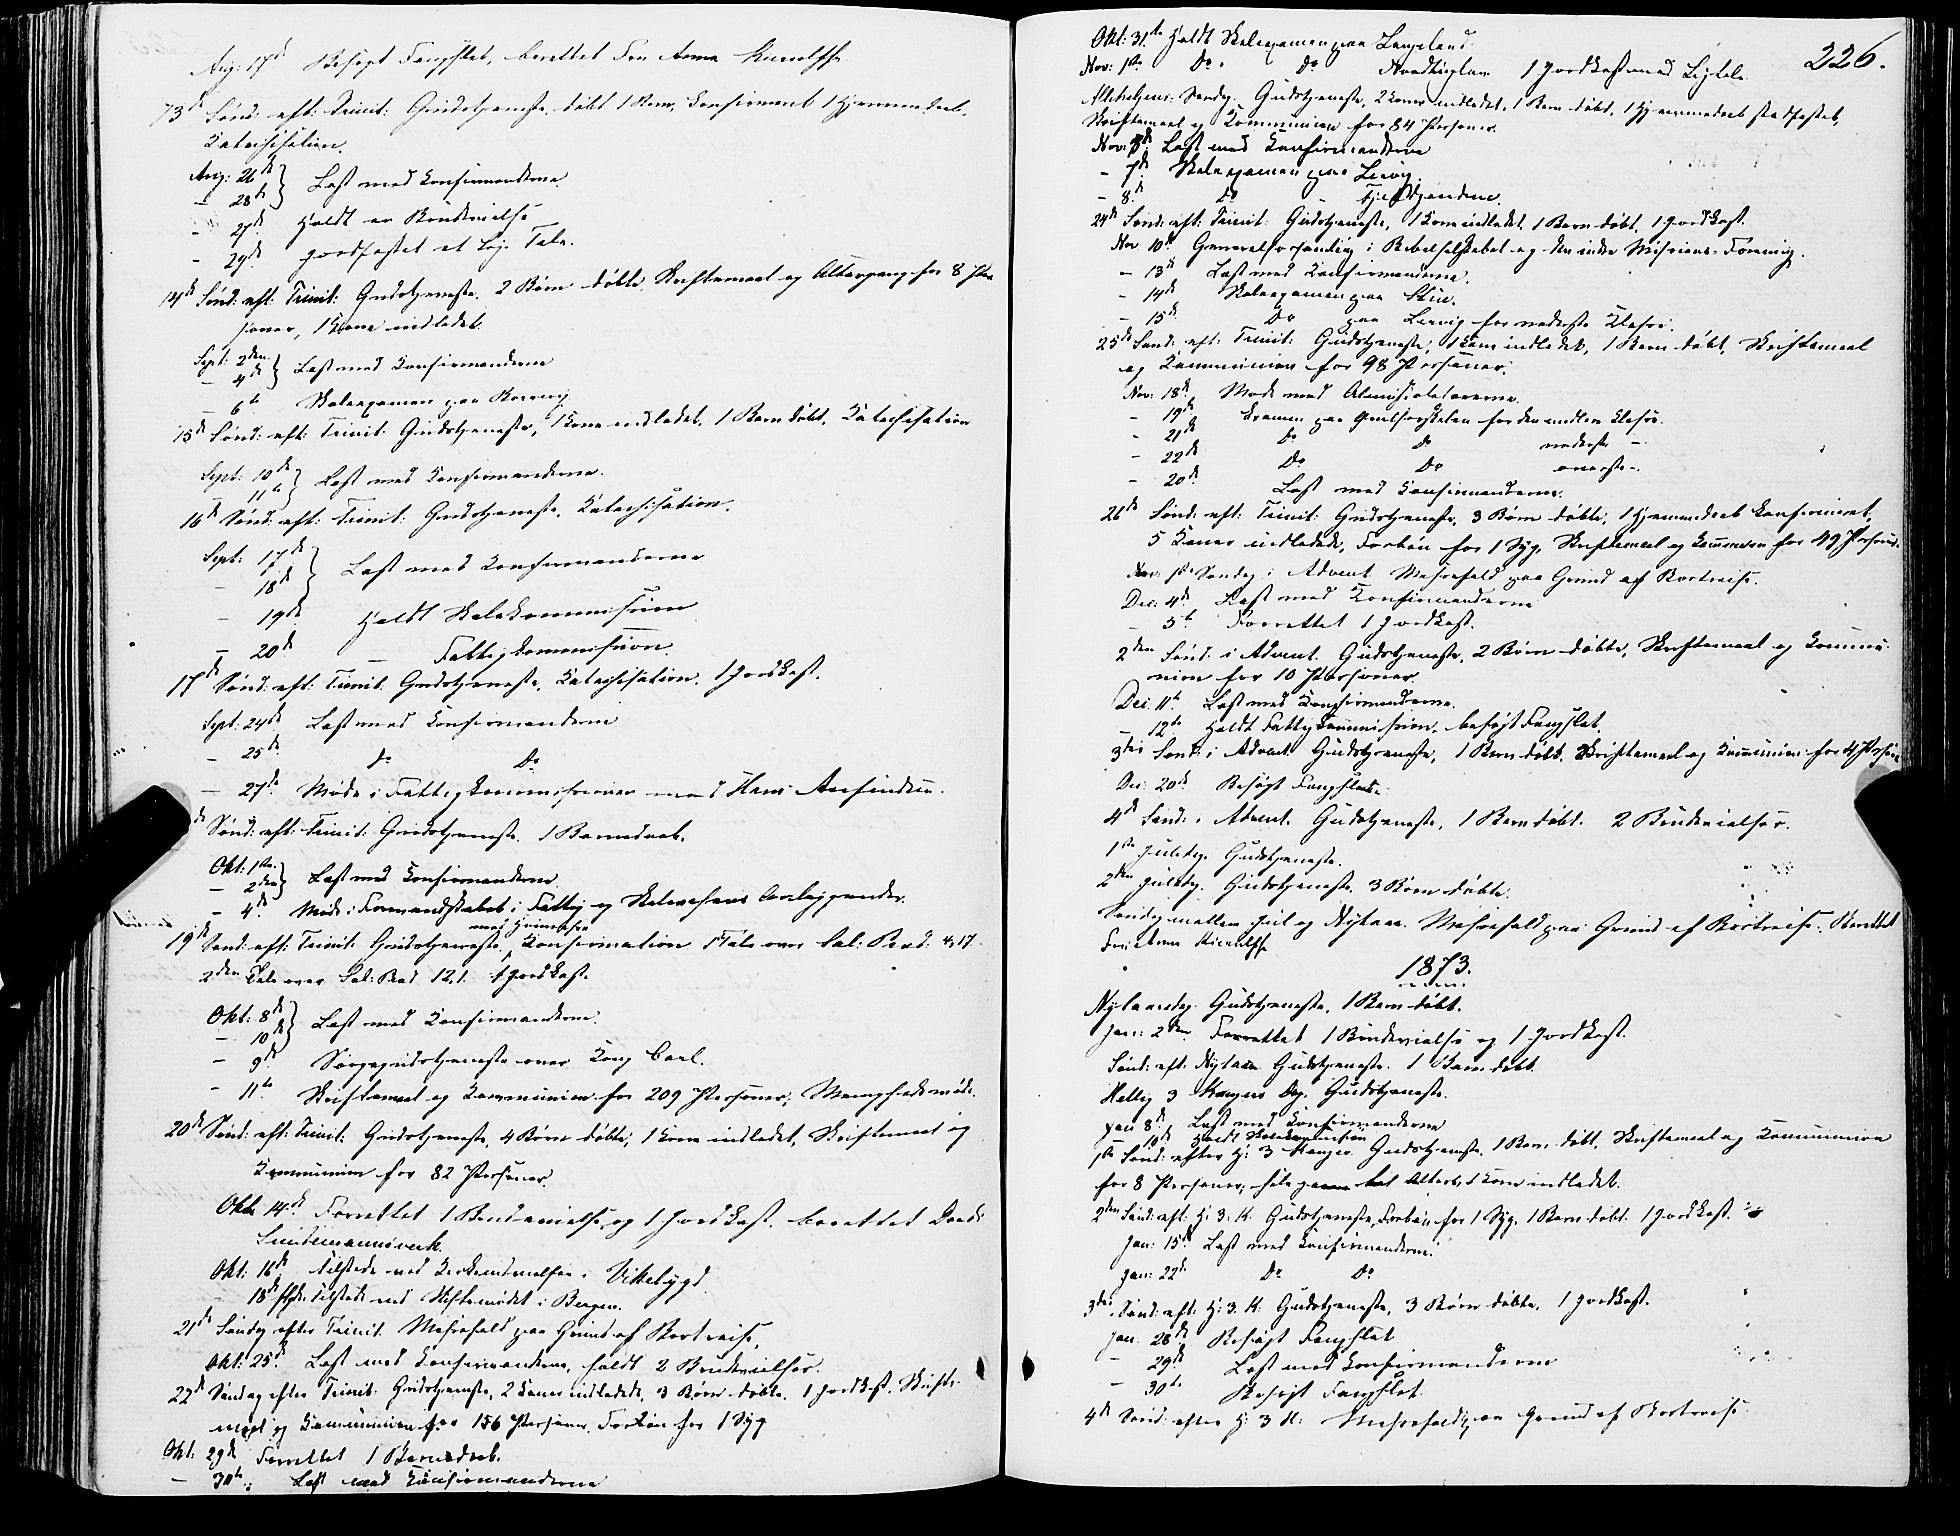 Aug: 17de Besøgt Fængslet, berettet Fru Anna
13de Sønd: eft: Trinit: Gudstjeneste, døbt 1 Barn, konfirmeret 1 Hjemmedøbt.
Katechisation.
Aug: 26de } Læst med Konfirmanderne
- 28de }
- 27de Holdt en Brudevielse
- 29de jordfæstet et Lig. Tale.
14de Sønd: eft: Trinit: Gudstjeneste. 2 Børn døbte, Skriftemaal og Altergang for 8 Per-
soner, 1 Kone indledet.
Sept: 2den } Læst med Konfirmanderne
- 4de }
- 6te Skoleexamen paa
15de Sønd: eft: Trinit: Gudstjeneste, 1 Kone indledet, 1 Barn døbt, Katechisation
Sept: 10de } Læst med Konfirmanderne.
11te }
16de Sønd: eft: Trinit: Gudstjeneste. Katechisation.
Sept: 17de } Læst med Konfirmanderne
- 18de }
- 19de Holdt Skolekommission
- 20de - Fattigkommission.
17de Sønd: eft: Trinit. Gudstjeneste, Katechisation. 1 Jordkast.
Sept: 24de Læst med Konfirmanderne
- 25de do Do
- 27de Møde i Fattigkommissionen med Hans
de Sønd: eft: Trinit: Gudstjeneste. 1 Barnedaab.
Okt: 1ste } Læst med Konfirmanderne
- 2den }
- 4de Møde i Formandskabet i Fattig og Skolevæsens Anliggender.
19de Sønd: eft: Trinit: Gudstjeneste, Konfirmation 1 Tale over Sal: Præd: 4,17.
2den Tale over Sal: Præd 12,1. 1 Jordkast.
Okt: 8de } Læst med Konfirmanderne.
- 10de }
- 9de Sørgegudstjeneste over Kong Carl.
- 11te Skriftemaal og Kommunion for 209 Personer,
20de Sønd: eft: Trinit: Gudstjeneste, 4 Børn døbte, 1 Kone indledet, Skriftemaal og
Kommunion for 82 Personer.
Okt: 14de Forrettet 1 Brudevielse og 1 Jordkast, berettet
Okt: 16de tilstede ved Kirkeindvielsen i Vikebygd
- 18de tilstede ved Stiftsmødet i Bergen.
21de Søndag efter Trinit. Messefald paa Grund af Bortreise.
Okt: 25de Læst med Konfirmanderne, holdt 2 Brudevielser.
22de Søndag efter Trinit: Gudstjeneste, 2 Koner indledede, 3 Børn døbte, 1 Jordkast, Skrifte-
maal og Kommunion for 156 Personer. Forbøn for 1 Syg
Okt: 29de Forrettet 1 Barnedaab.
- 30te: Læst med Konfirmanderne
226.
Okt: 31te Holdt Skoleexamen paa Langeland.
Nov: 1ste Do. Do 1 Jordkast med Ligtale
Allehelgens: Søndag. Gudstjeneste, 2 Koner indledet, 1 Barn døbt, 1 Hjemmedøbt stadfæstet,
Skriftemaal og Kommunion for 84 Personer.
Nov: Læst med Konfirmanderne
- 7de Skoleexamen paa Leervig.
- 8de Do
24de Sønd: eft: Trinit: Gudstjeneste, 1 Kone indledet, 1 Barn døbt, 1 Jordkast.
Nov 10de Generalforsamling i Bibelselskabet og den indre Missions-Forening.
- 13de Læst med Konfirmanderne.
- 14de Skoleexamen paa
- 15de Do paa Leervig for nederste Klasse.
25de Sønd: eft: Trinit: Gudstjeneste, 1 Kone indledet, 1 Barn døbt, Skriftemaal
og Kommunion for 98 Personer.
Nov: 18de Møde med
- 19de Examen paa for den midlere Klasse.
- 21de Do Do nederste -
- 22de Do Do øverste -.
- 20de Læst med Konfirmanderne.
26de Sønd: eft: Trinit: Gudstjeneste, 3 Børn døbte, 1 Hjemmedøbt konfirmeret,
5 Koner indledede, Forbøn for 1 Syg, Skriftemaal og Kommunion for 49 Personer.
1ste Søndag i Advent. Messefald paa Grund af Bortreise.
Dec: 4de Læst med Konfirmanderne
- 5te Forrettet 1 Jordkast.
2den Sønd: i Advent. Gudstjeneste, 2 Børn døbte, Skriftemaal og Kommu-
nion for 10 Personer
Dec: 11te Læst med Konfirmanderne.
- 12te Holdt Fattigkommission, besøgt Fængslet.
3die Sønd: i Advent Gudstjeneste, 1 Barn døbt. Skriftemaal og Kommunion for 4 Personer
Dec: 20de Besøgt Fængslet.
4de Sønd: i Advent. Gudstjeneste, 1 Barn døbt. 2 Brudevielser.
1ste Juledag. Gudstjeneste.
2den Juledag. Gudstjeneste. 3 Børn døbte.
Søndag mellem Jul og Nytaar. Messefald paa Grund af Bortreise. Berettet
Fru Anna
1873.
Nytaarsdag. Gudstjeneste. 1 Barn døbt.
Jan: 2den Forrettet 1 Brudevielse og 1 Jordkast.
Sønd: eft. Nytaar Gudstjeneste. 1 Barn døbt.
Hellig 3 Kongers Dag. Gudstjeneste.
Jan 8de Læst med Konfirmanderne
- 10de Holdt Skolekommission
1ste Sønd: efter H: 3 Konger Gudstjeneste, 1 Barn døbt, Skriftemaal og Kommunion
for 8 Personer, 1 Kone indledet.
2den Sønd: eft: H: 3: K: Gudstjeneste, Forbøn for 1 Syg, 1 Barn døbt. 1 Jordkast.
Jan: 15de Læst med Konfirmanderne.
Jan: 22de Do Do
3die Sønd: eft: H: 3. K: Gudstjeneste, 3 Børn døbte, 1 Jordkast.
Jan: 28de Besøgt Fængslet
- 29de Læst med Konfirmanderne
- 30te Besøgt Fængslet.
4de Sønd: efter H: 3 K: Messefald paa Grund af Bortreise